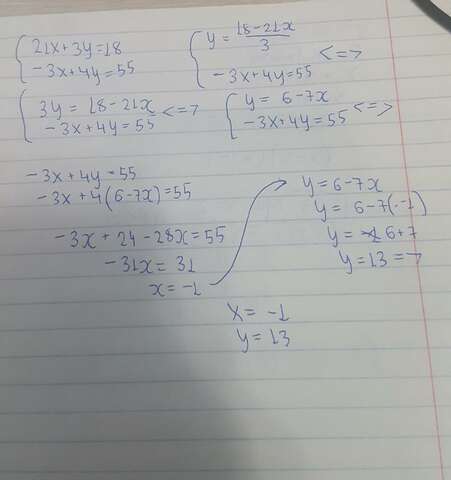 { 21x+3y=18
-3x+4y=55
{ y = 18-21x / 3
-3x+4y=55 <=>
{ 3y = 18-21x
-3x+4y=55 <=>
{ y = 6-7x
-3x+4y=55 <=>
-3x+4y=55
-3x+4(6-7x)=55
-3x+24-28x=55
-31x=31
x=-1
y=6-7x
y= 6-7(·-1)
y= 6+7
y=13 =>
x= -1
y= 13